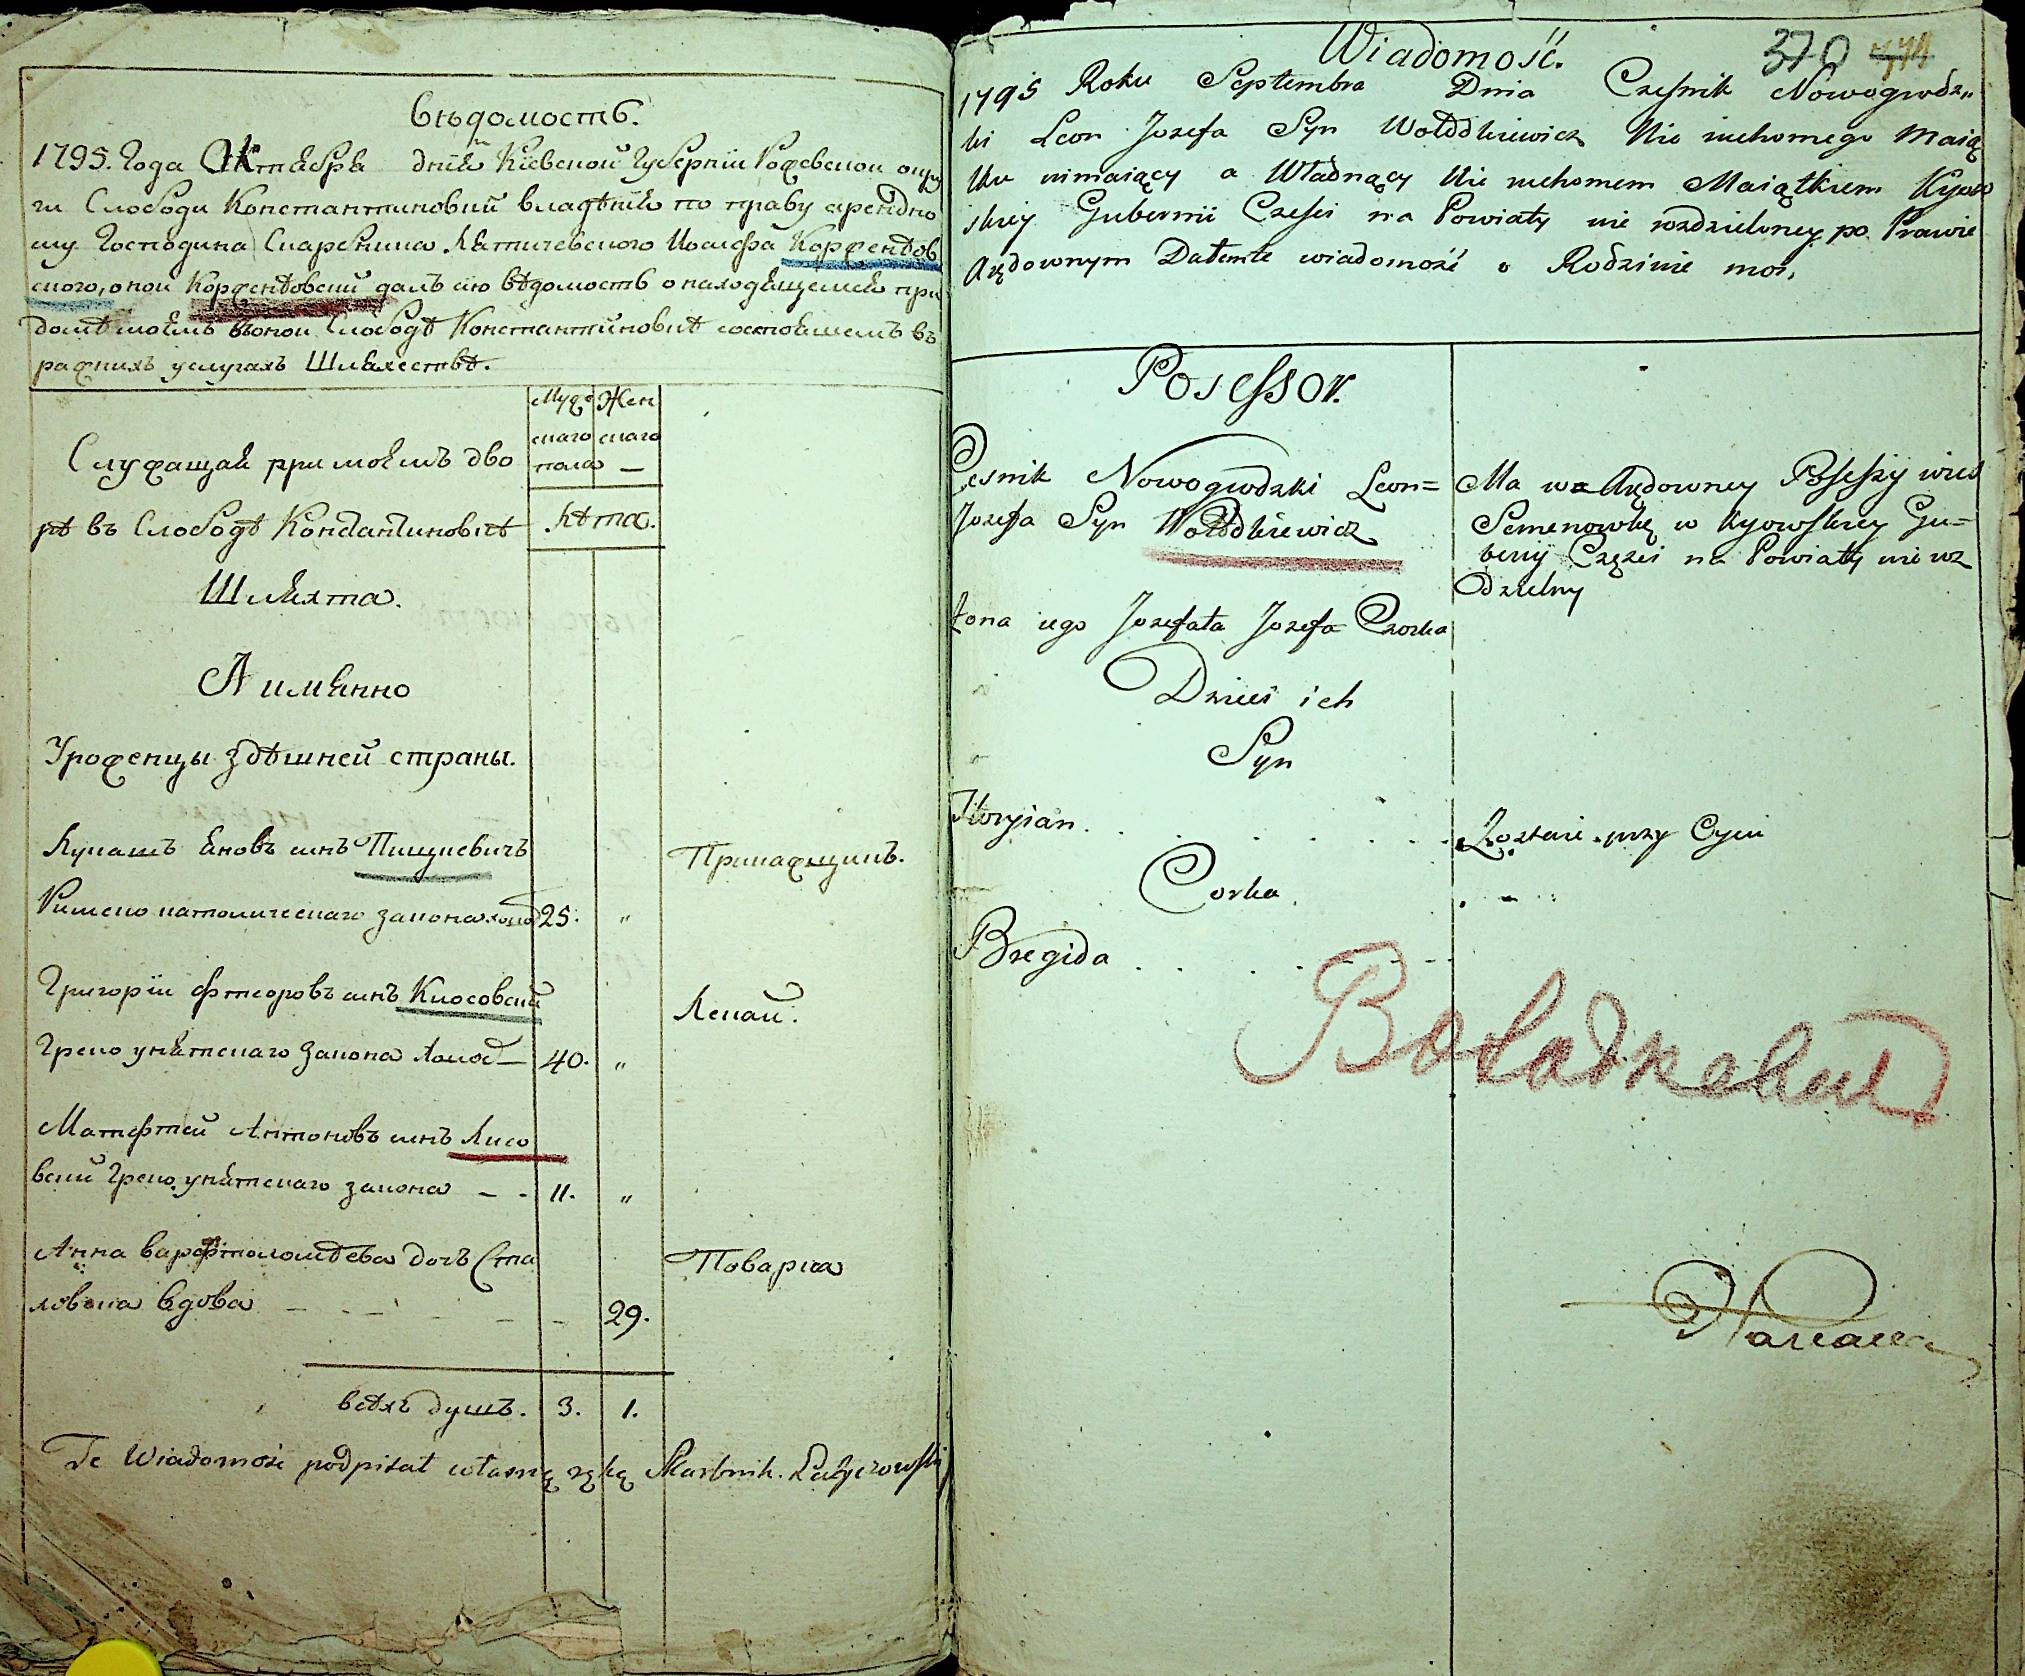 Вѣдомость.
1795. Года Октября дня Кіевской Губерніи Рожевской окру
ги Слободи Константиновки владѣнія по праву арендно
му Господина Скарбника Лятичевского Иосифа Корженѣов
ского, оной Корженѣовский далъ сію вѣдомость о находящемся при
домѣ моемъ въ оной Слободѣ Константиновкѣ состоящемъ въ
разнихъ услугахъ Шляхествѣ.
Мужескаго пола
Женскаго —
Служащая при моемъ дво
рѣ въ Слободѣ Константиновкѣ
Лѣта.
Шляхта.
А имянно
Уроженцы здѣшней страны.
Лукашъ Яновъ синъ Пищкевичъ
Прикащикъ.
Римско католическаго закона холос 25. „
Григорій Фтеоровъ синъ Клосовский
Лекай.
Греко унѣятскаго закона холос — 40. „
Матфтей Антоновъ синъ Лисо
вский Греко унѣятскаго закона — - 11. „
Анна Варфтоломѣева дочъ Ста
Поварка
ловска вдова 29.
всѣхъ душъ. 3. 1.
Te Wiadomość podpisał własną ręką Skarbnik Latyczowski
Wiadomość.
370
1795 Roku Septembra Dnia Czesnik Nowogrodz„
ki Leon Jozefa Syn Wołodkiewicz Nie ruchomego Maią
tku nimaiący a Władnący Nie ruchomem Maiątkiem Kyow
skiey Gubernii Częsci na Powiaty nie rozdzieloney po Prawie
Arędownym Datemte wiadomość o Rodzinie moi,
Posessor.
Czesnik Nowogrodzki Leon=
Jozefa Syn Wołodkiewicz
Ma w Arędowney Possesyi wieś
Semenowkę w Kyowskiey Gu=
bernij Częsci na Powiaty nie roz
dzielny
Żona iego Jozefata Jozefa Czorka
Dzieci ich
Syn
Floryian
Zostaie przy Oycu
Corka
Bregida
Володкевич